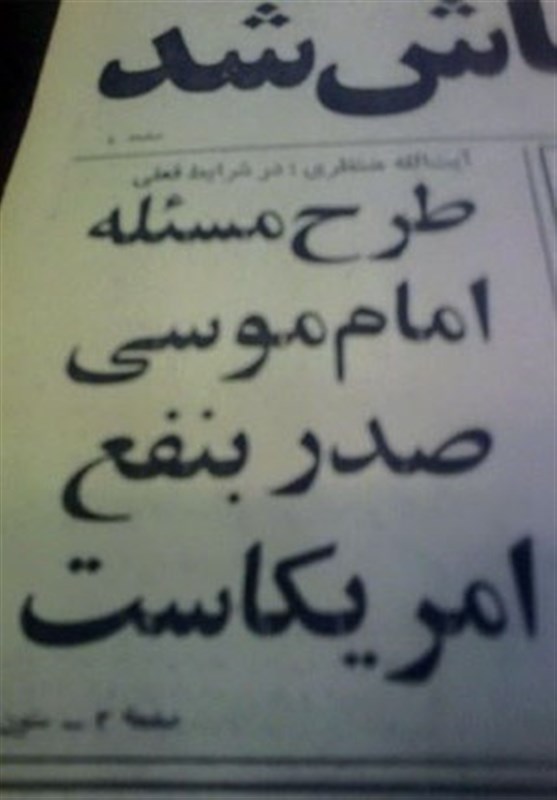 اش شد
صفحه
آیت‌الله منتظری : در شرایط فعلی
طرح مسئله
امام موسی
صدر بنفع
امریکاست
صفحهٔ ۳ ــ ستون